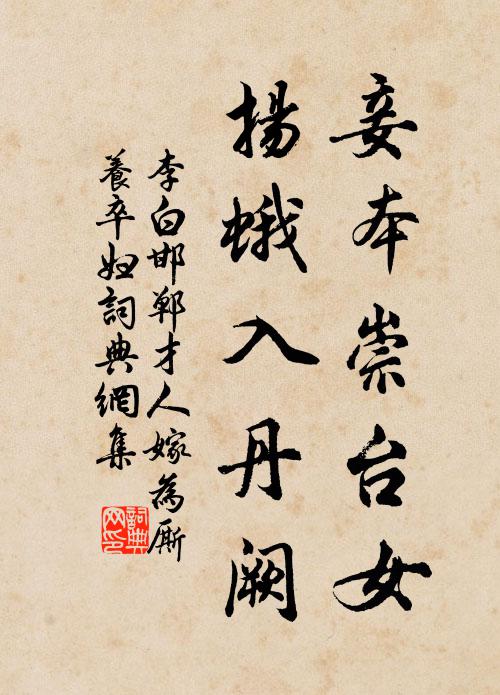 妾本崇台女
揚蛾入丹闕
李白邯鄲才人嫁為厮
養卒妇詞典網集
詞典
网印